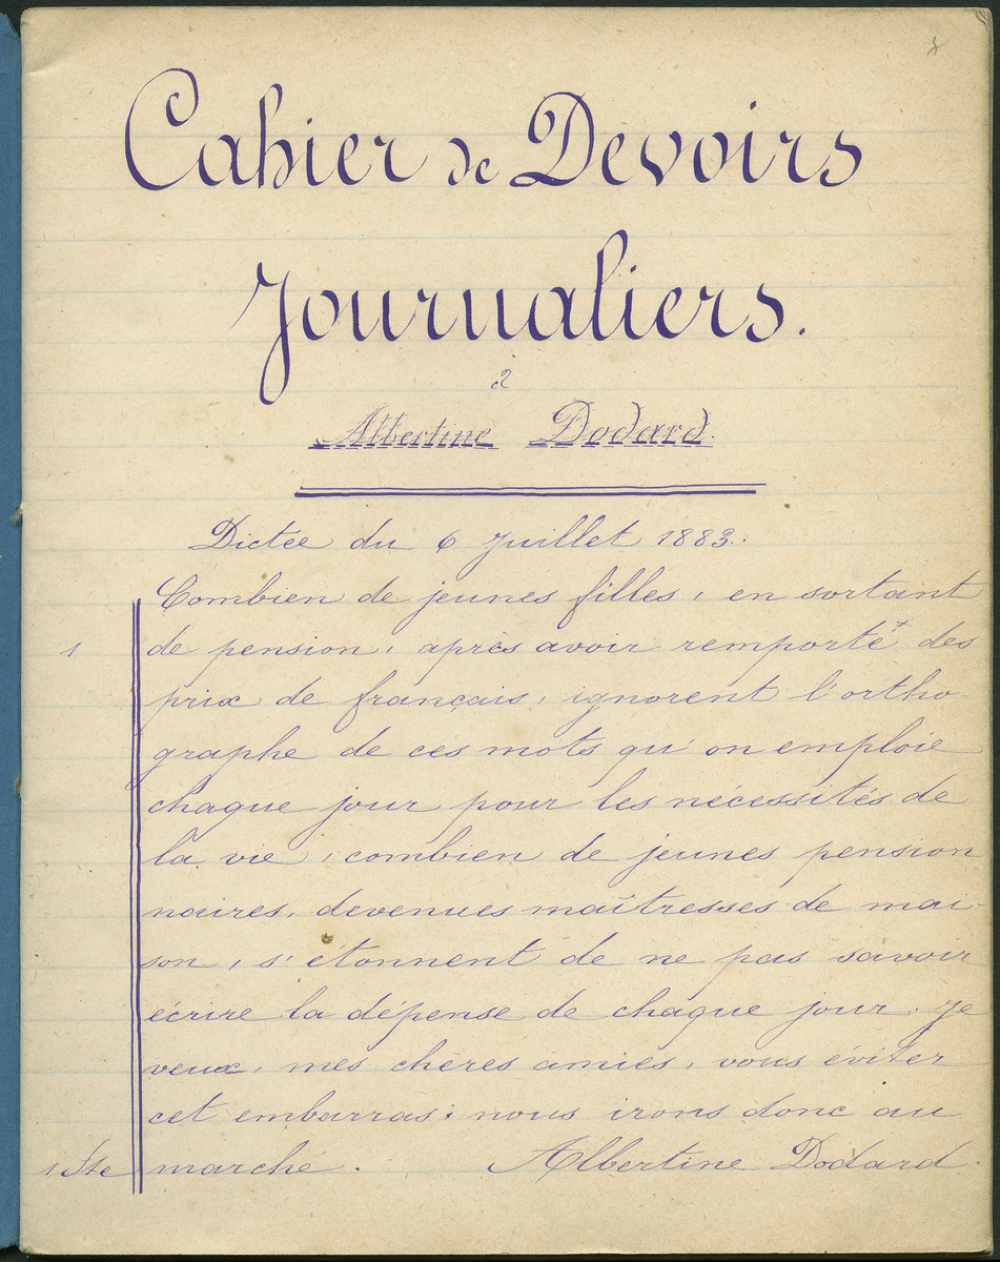 8
Cahier de Devoirs
Journaliers.
à
Albertine Dodard.
Dictée du 6 Juillet 1883.
Combien de jeunes filles, en sortant
1 de pension, après avoir remporté+ des
prix de français, ignorent l'ortho
graphe de ces mots qu'on emploie
chaque jour pour les nécessités de
la vie, combien de jeunes pension
naires, devenues maîtresses de mai
son, s'étonnent de ne pas savoir
écrire la dépense de chaque jour. Je
veux, mes chères amies, vous éviter
cet embarras: nous irons donc au
1 fte marché. Albertine Dodard.